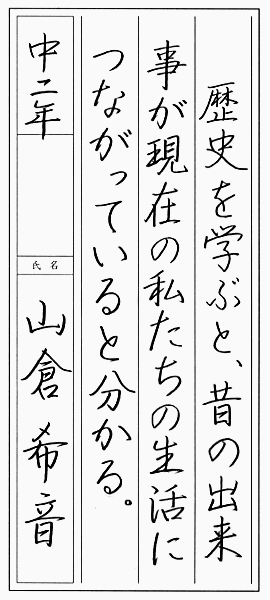 歴史を学ぶと、昔の出来
事が現在の私たちの生活に
つながっていると分かる。
中二年
氏名
山倉希音